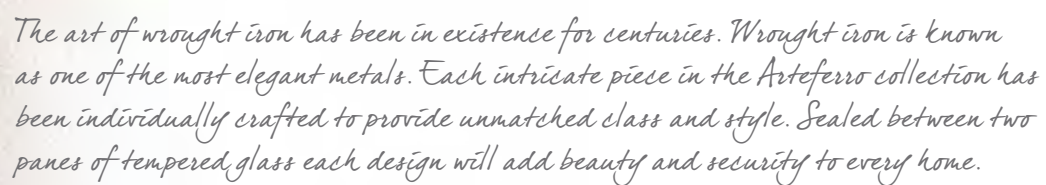 The art of wrought iron has been in existence for centuries. Wrought iron is known
as one of the most elegant metals. Each intricate piece in the Arteferro collection has
been individually crafted to provide unmatched class and style. Sealed between two
panes of tempered glass each design will add beauty and security to every home.